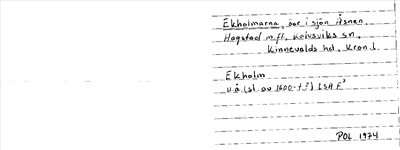 Ekholmarna, öar i sjön Åsnen,
Hagstad m.fl., sn,
Kinnevalds hd, Kron. l.
Ekholm
u.å (sl. av 1600-t?) LSA F³
POL 1974